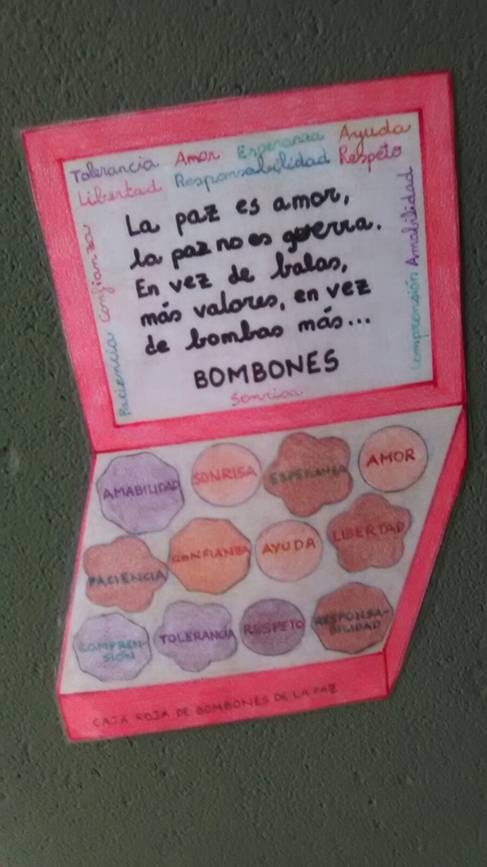 Tolerancia Amor Esperanza Ayuda
Libertad Responsabilidad Respeto
Paciencia Confianza
La paz es amor,
la paz no es guerra.
En vez de balas,
más valores, en vez
de bombas más...
BOMBONES
Comprensión Amabilidad
Sonrisa
AMABILIDAD SONRISA ESPERANZA AMOR
PACIENCIA CONFIANZA AYUDA LIBERTAD
COMPREN-
SIÓN
TOLERANCIA RESPETO
RESPONSA-
BILIDAD
CAJA ROJA DE BOMBONES DE LA PAZ